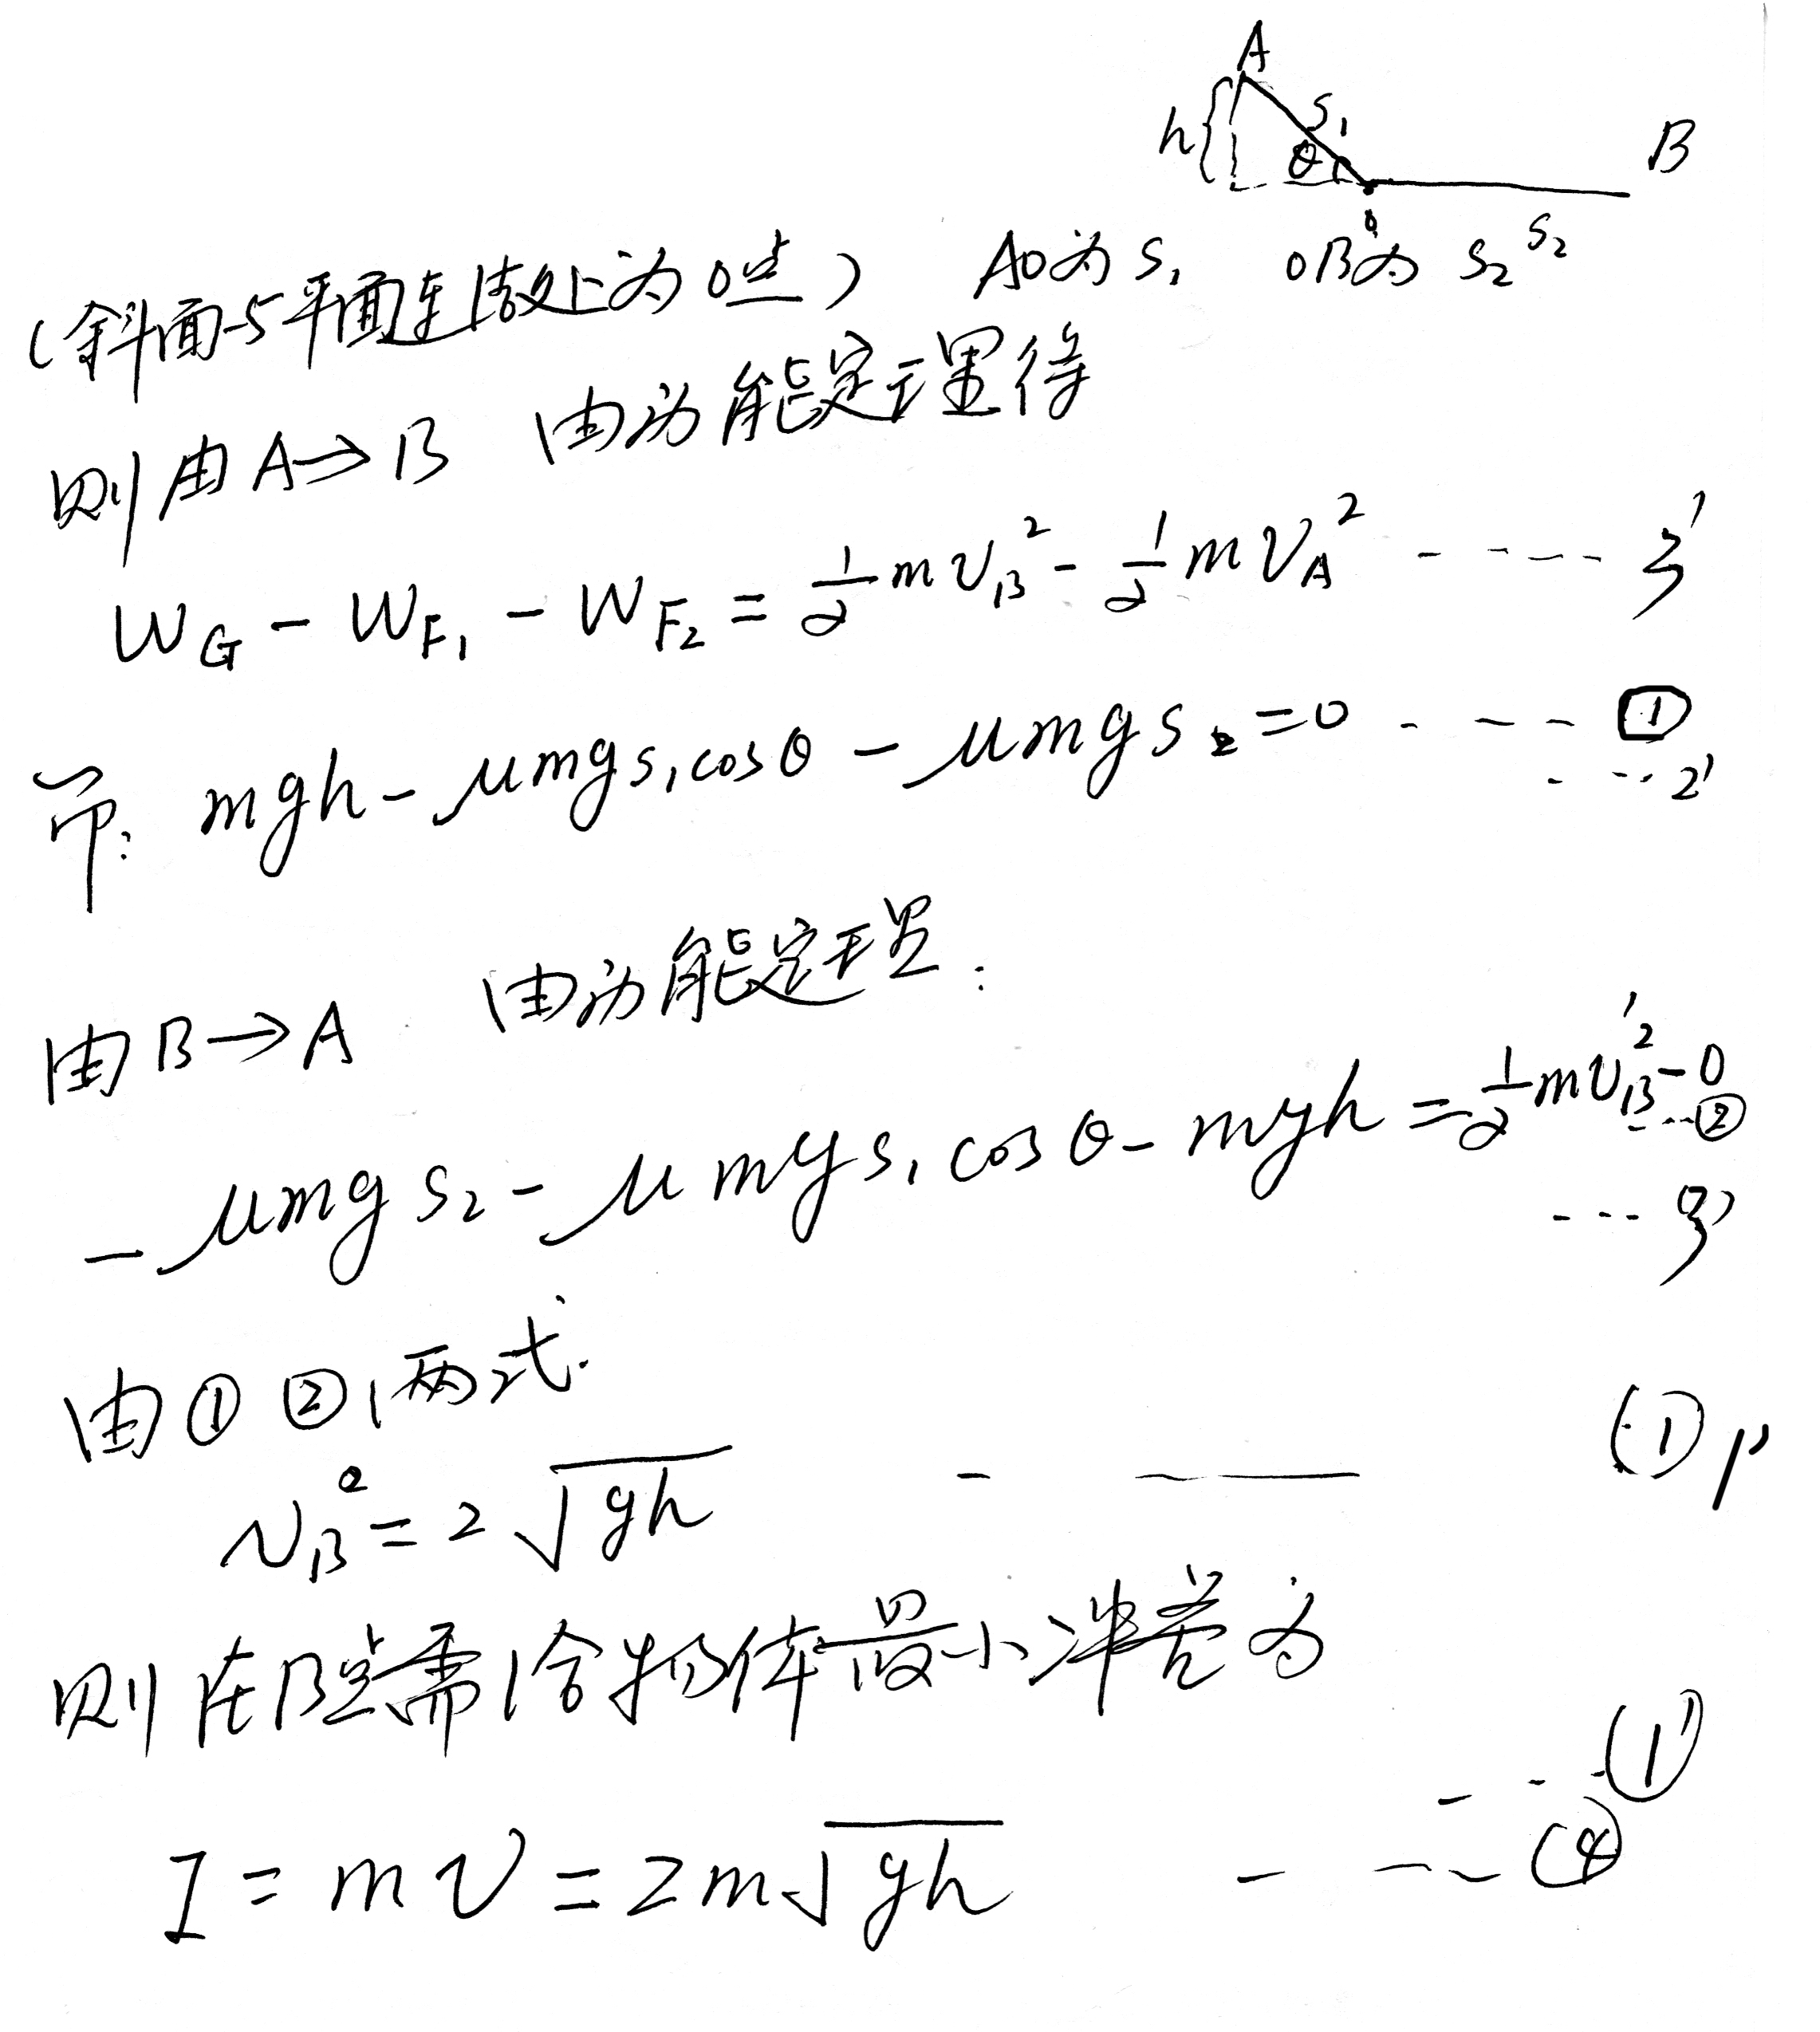 A
h
S₁
θ
B
0
S₂
(斜面与平面连接处为0点) A0为S₁ 0B为 S₂
则由A→B 由动能定理得
W_G - W_F₁ - W_F₂ = ½mv_B² - ½mv_A² ----- 3'
即: mgh - μmgs₁cosθ - μmgs₂ = 0 ---- ①
---- 2'
由B→A 由动能定理:
-μmgs₂ - μmgs₁cosθ - mgh = ½mv_B'² - 0 ---②
--- 3'
由①②两式.
v_B = 2√gh - —— (1) 1'
则在B点需给物体最小冲量为
--- (1')
I = mv = 2m√gh - --- (4)